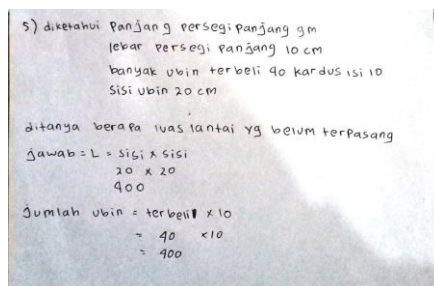 5) diketahui panjang persegi panjang 9m
lebar persegi panjang 10 cm
banyak ubin terbeli 40 kardus isi 10
sisi ubin 20 cm
ditanya berapa luas lantai yg belum terpasang
jawab = L = sisi x sisi
20 x 20
400
Jumlah ubin = terbeli x 10
= 40 x 10
= 400